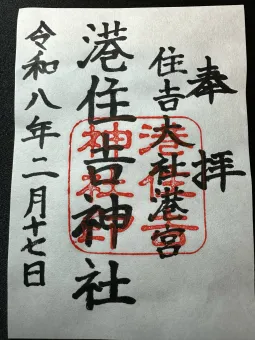 奉拝
住吉大社港宮
港住吉神社
令和八年二月十七日
港住吉神社